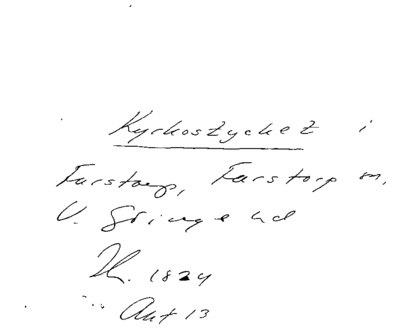 Kyrkostycket i
Farstorp, Farstorp sn,
V. Göinge hd
Th. 1824
Aut 13